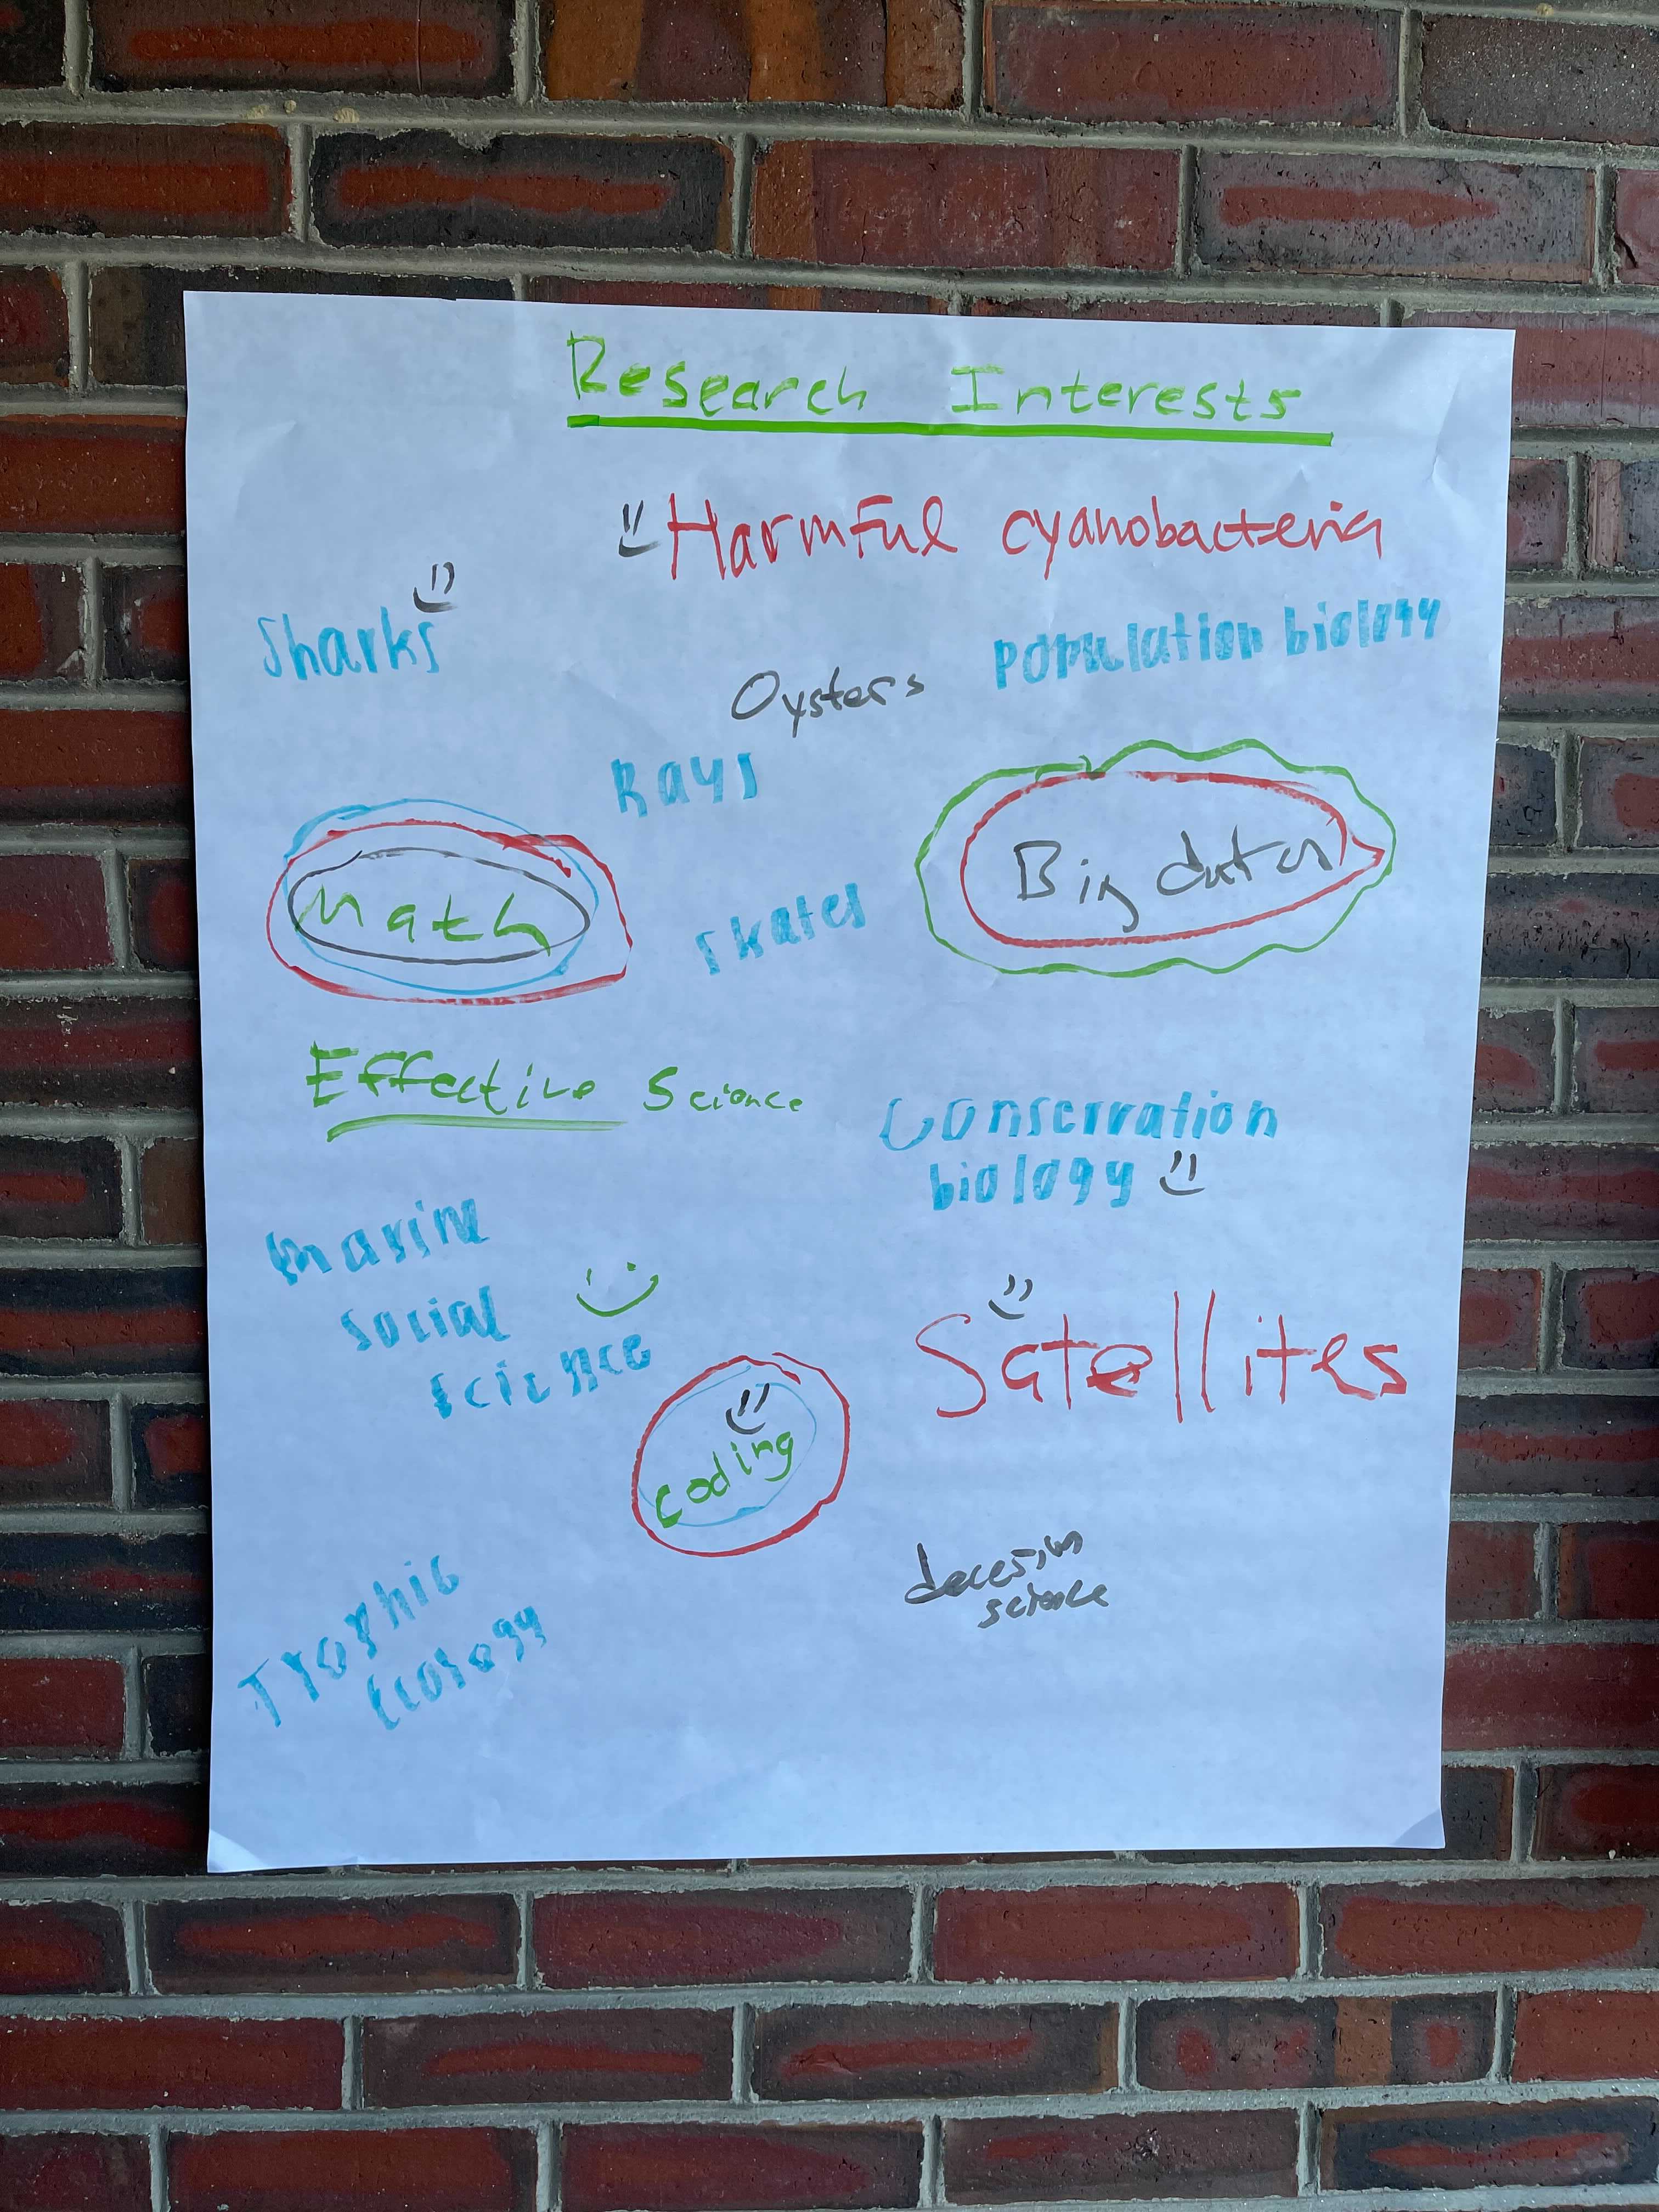 Research Interests
Harmful cyanobacteria
Sharks
Population biology
Oysters
Rays
Math
Big data
Skates
Effective Science
Conservation
biology
Marine
Social
Science
Satellites
coding
decesion
science
Trophic
Ecology